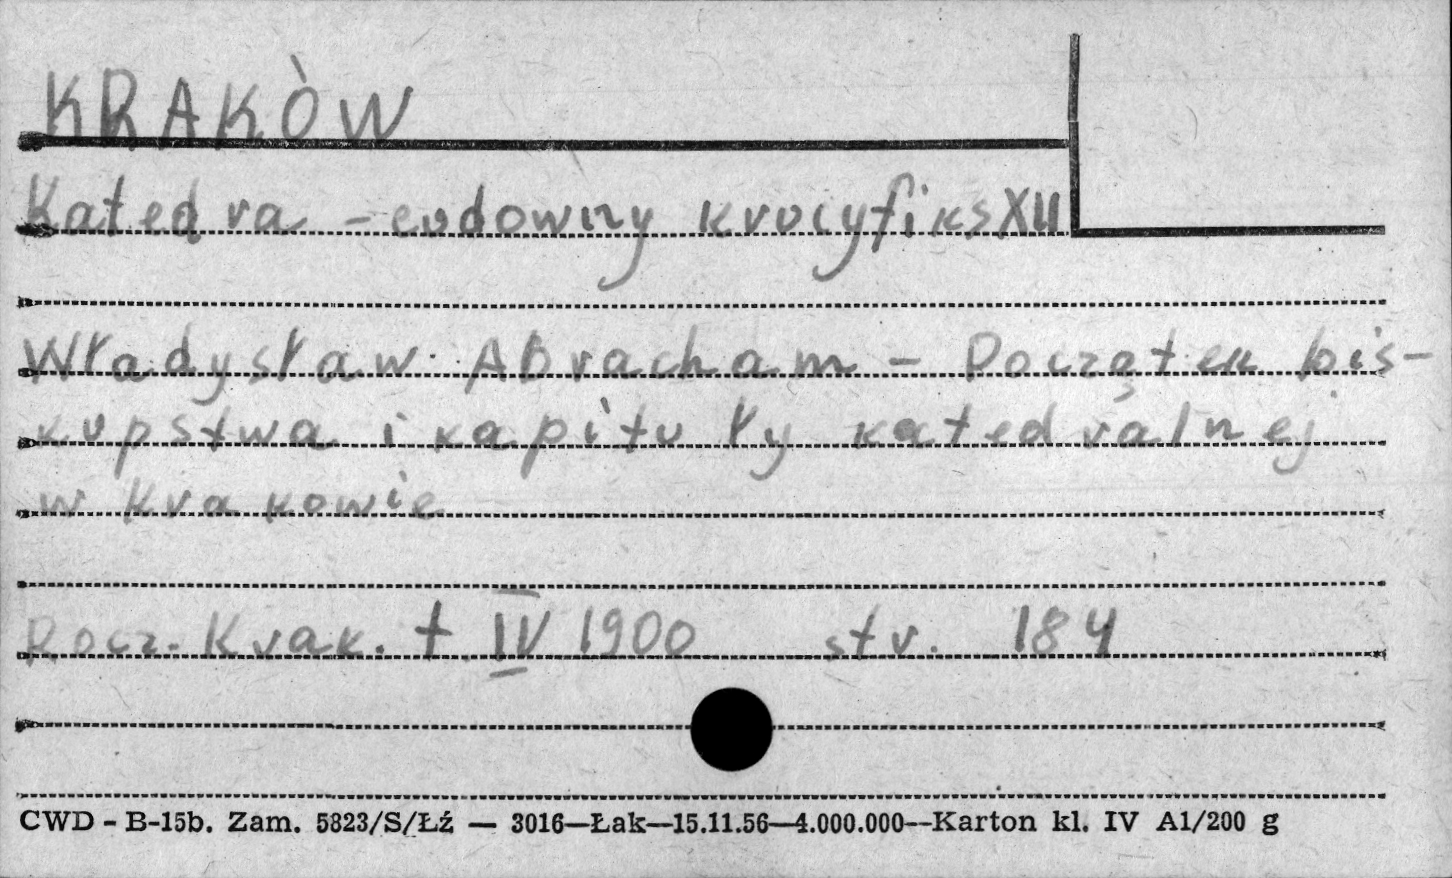 KRAKÒW
Katedra - cudowny krucyfiks XII
Władysław Abracham - Początek bis-
kupstwa i kapituły katedralnej
w Krakowie
Rocz. Krak. t. IV 1900 str. 184
CWD - B-15b. Zam. 5823/S/Łź — 3016—Łak—15.11.56—4.000.000—Karton kl. IV A1/200 g